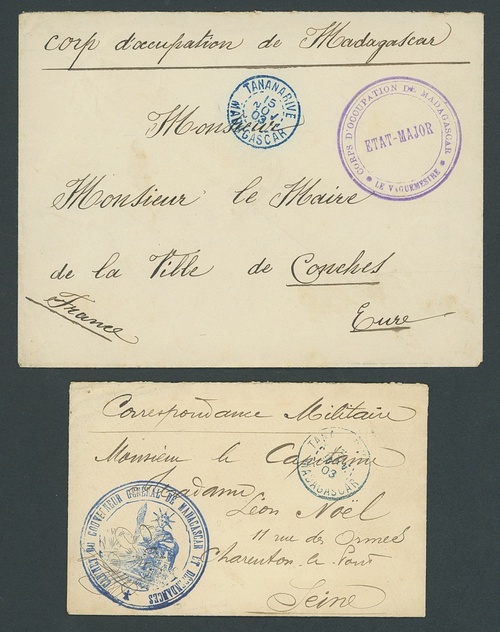 corp d'occupation de Madagascar
TANANARIVE
15
NOV
03
MADAGASCAR
CORPS D'OCCUPATION DE MADAGASCAR
ETAT-MAJOR
LE VAGUEMESTRE
Monsieur
Monsieur le Maire
de la Ville de Conches
France
Eure
Correspondance Militaire
Monsieur le Capitaine
03
MADAGASCAR
Madame
Léon Noël
11 rue des Ormes
Charenton le Pont
Seine
CABINET DU GOUVERNEUR GENERAL DE MADAGASCAR ET DEPENDANCES